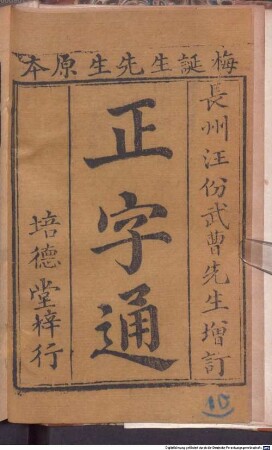 梅誕生先生原本
長州汪份武曹先生增訂
正字通
培德堂梓行
10